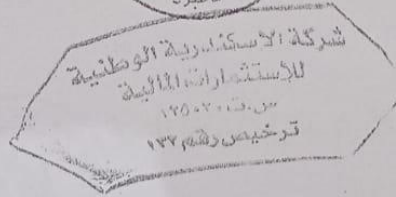 شركة الاسكندرية الوطنية
للإستثمارات المالية
س.ت: ١٢٥٠٣٠
ترخيص رقم ١٣٣